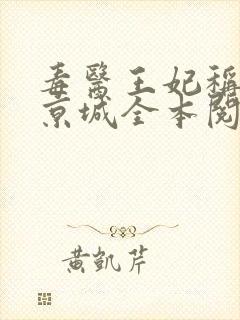 毒醫王妃稱
京城全本閱
黃凱芹